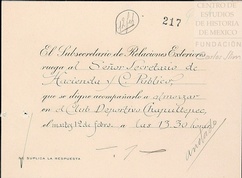 217
CENTRO DE
ESTUDIOS
DE HISTORIA
DE MEXICO
FUNDACIÓN
El Subsecretario de Relaciones Exteriores
ruega al Señor Secretario de
Hacienda y C. Público
que se digne acompañarlo a almorzar
en el Club Deportivo Chapultepec
el martes 12 de febro. a las 13.30 horas
SE SUPLICA LA RESPUESTA
anotado